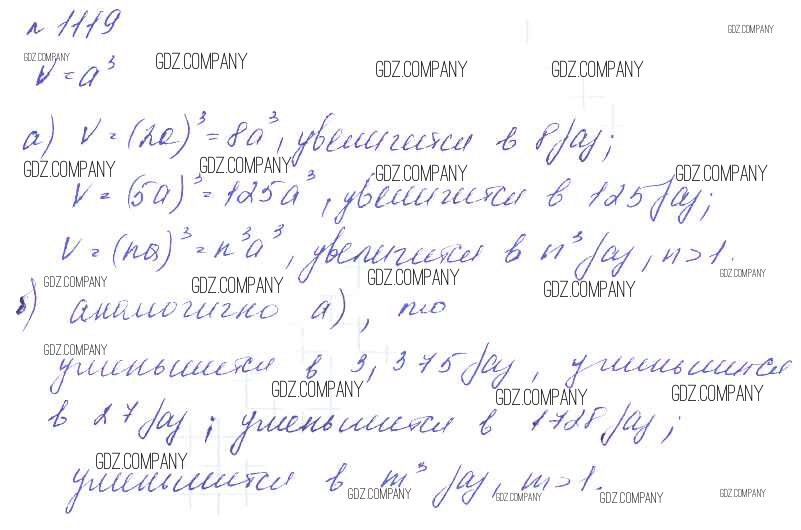 № 1119
GDZ.COMPANY
GDZ.COMPANY GDZ.COMPANY GDZ.COMPANY GDZ.COMPANY
V = a³
а) V = (2a)³ = 8a³, увеличится в 8 раз;
GDZ.COMPANY GDZ.COMPANY GDZ.COMPANY GDZ.COMPANY
V = (5a)³ = 125a³, увеличится в 125 раз;
V = (na)³ = n³a³, увеличится в n³ раз, n > 1.
GDZ.COMPANY GDZ.COMPANY GDZ.COMPANY GDZ.COMPANY GDZ.COMPANY
б) аналогично а), то
GDZ.COMPANY
уменьшится в 3,375 раз, уменьшится
GDZ.COMPANY GDZ.COMPANY GDZ.COMPANY
в 27 раз; уменьшится в 1728 раз;
GDZ.COMPANY
уменьшится в m³ раз, m > 1.
GDZ.COMPANY GDZ.COMPANY GDZ.COMPANY GDZ.COMPANY